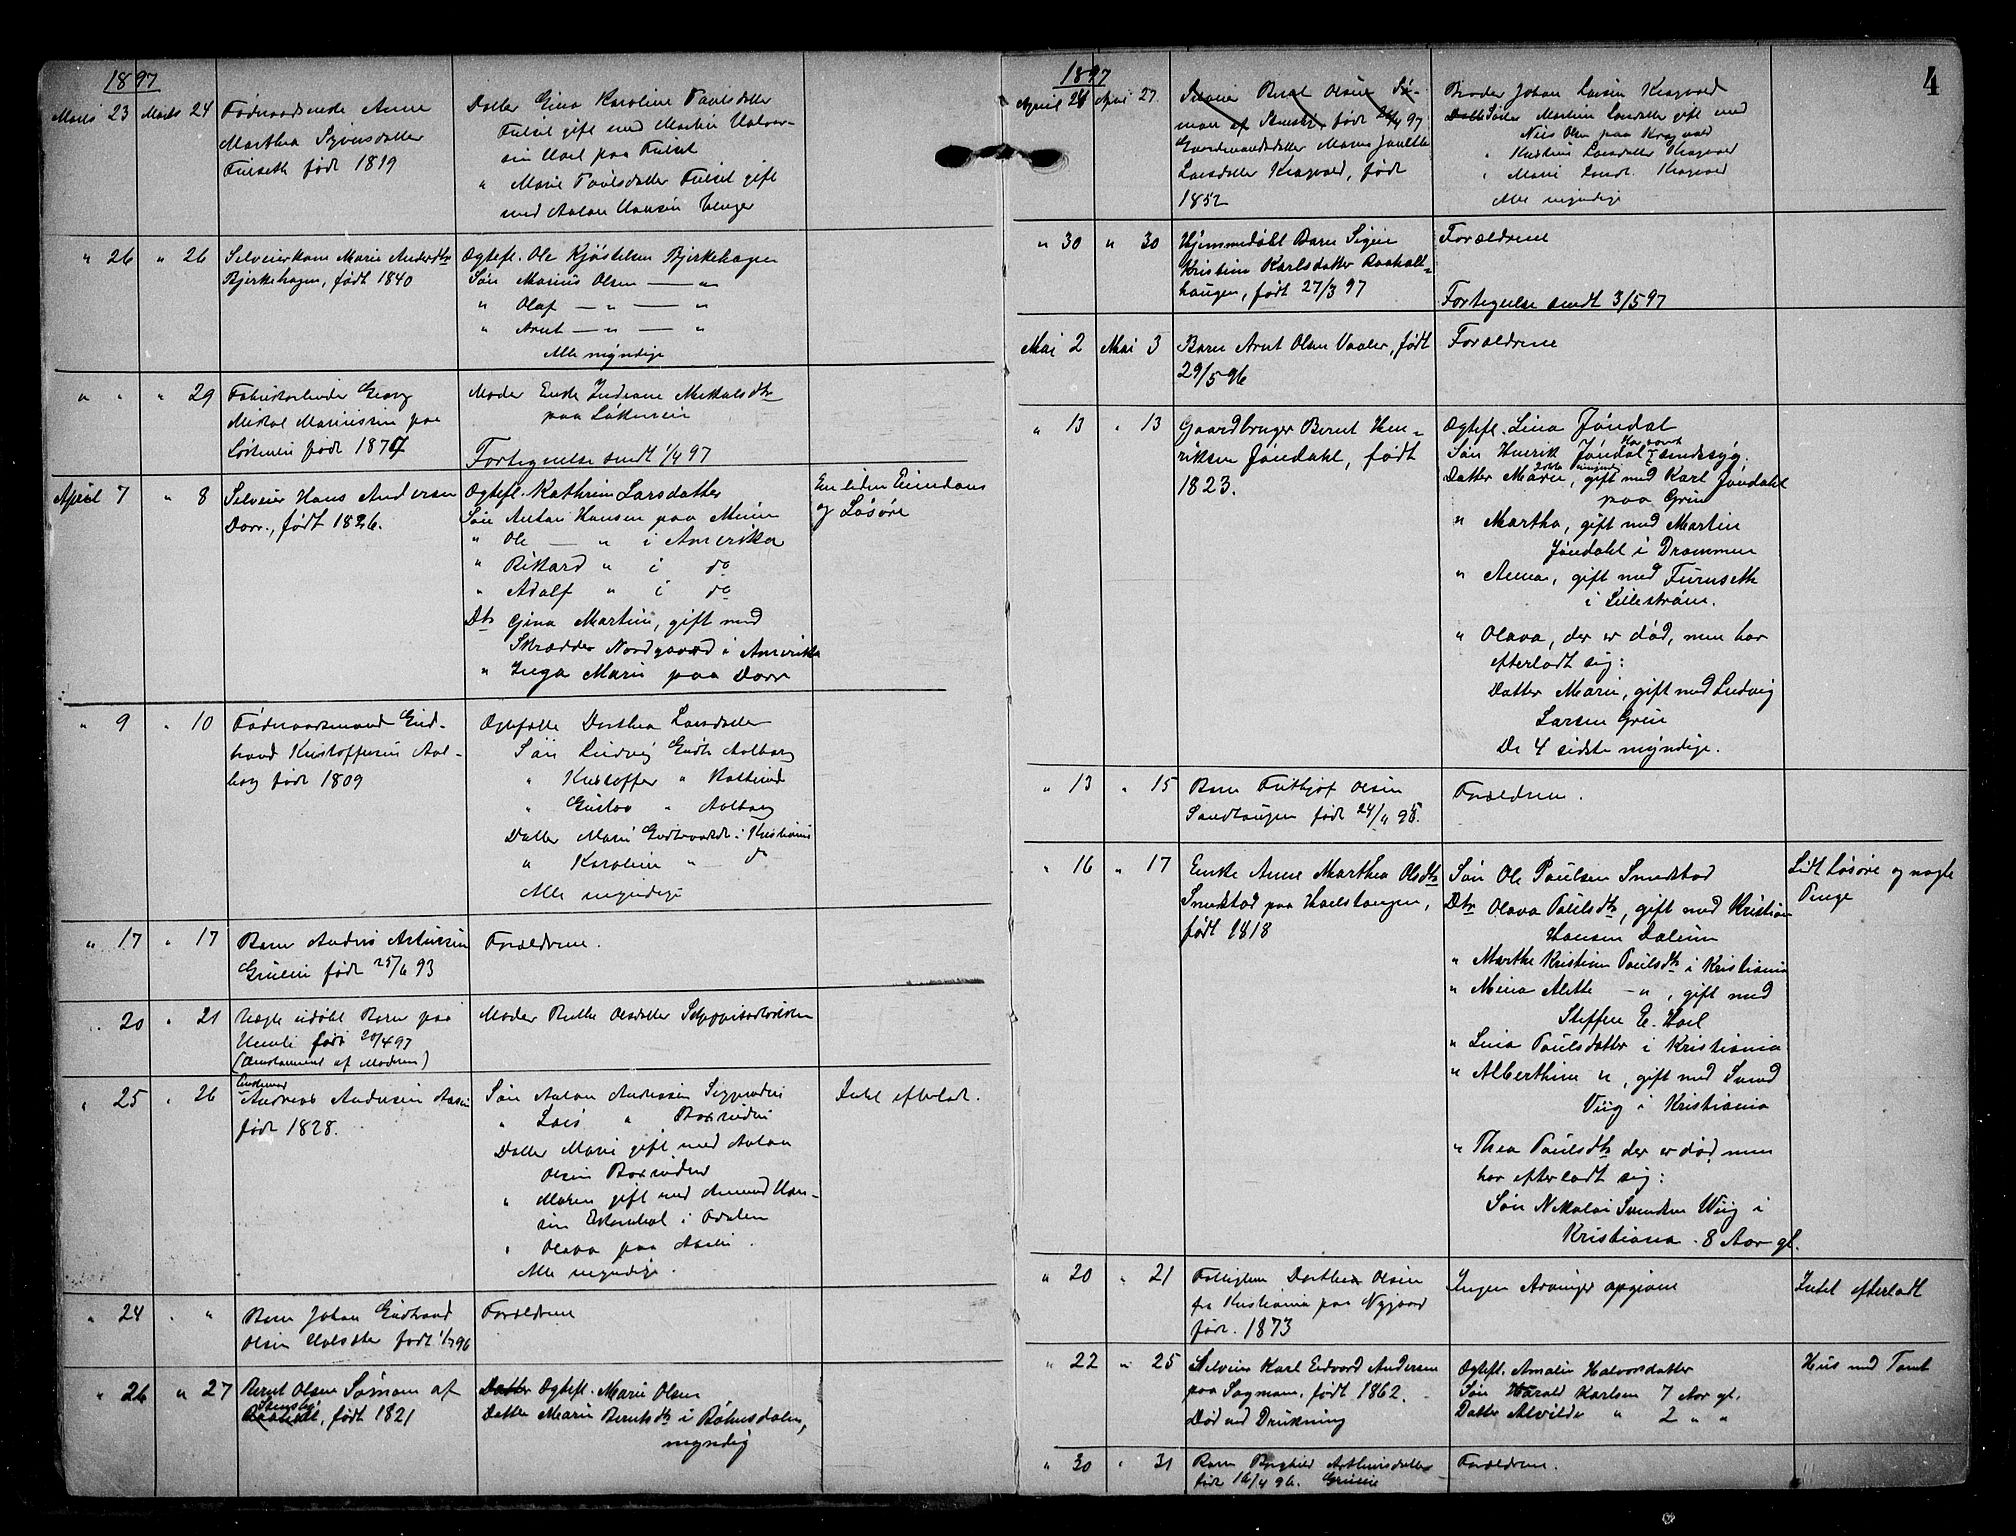 1897
Marts 23 Marts 24 Føderaadsenke Anne
Marthea Syversdatter
Fulseth født 1819
Datter Gina Karoline Paulsdatter
Fulset gift med Martin Halvor-
sen Hoel paa Fulset
" Marie Paulsdatter Fulset gift
med Anton Hansen
" 26 " 26 Selveierkone Marie Andersdtr
Bjerkehagen, født 1840
Ægtef. Ole Kjøstelsen Bjerkehagen
Søn Marius Olsen — "
" Olaf — " — "
" Arnt — " — "
Alle myndige
" " " 29 Fabrikarbeider Georg
Mikal Mariussen paa
Løkenein født 1877
Moder Enke Indiane Mikkelsdtr
paa Løkenein
Fortegnelse sendt 1/4 97
April 7 " 8 Selveier Hans Andersen
Dorr., født 1826.
Ægtef. Kathrine Larsdatter
Søn Anton Hansen paa
" Ole — " i Amerika
" Rikard " i do
" Adolf " i do
Dtr Gina Martine, gift med
Skrædder Nordgaard i Amerika
" Inga Marie paa Dorr
En liden Eiendom
og Løsøre
" 9 " 10 Føderaadsmand Gud-
brand Kristoffersen Aal-
borg født 1809
Ægtefælle Dorthea Larsdatter
Søn Ludvig Gudb. Aalborg
" Kristoffer "
" Gustav " Aalborg
Datter Marie Gudbrandsdt. i Kristiania
" Karoline " — do
Alle myndige
" 17 " 17 Barn Anders Artursen
Grueni født 25/6 93
Forældrene.
" 20 " 21 Uægte udøbt Barn paa
Homli født 20/4 97
(Omkommet af Moderen)
Moder Bolle Olsdatter
" 25 " 26 Enkemand
Andreas Andersen Aasen
født 1828.
Søn Anton Andreassen
" Lars "
Datter Marie gift med Anton
Olsen
" Maren gift med Amund Han-
sen i Odalen
" Olava paa Aasen.
Alle myndige.
Intet efterladt.
" 24 " " Barn Johan Gudbrand
Olsen født 1/7 96
Forældrene
" 26 " 27 Bernt Olsen Sømoen af
Stensby, født 1821
Datter Ægtef. Marie Olsen
Datter Marie Berntsdtr i Rømsdalen,
myndig
4
1897
April 24 April 27 Bernt Olsen Sø-
moen af Stensby, født 26/4 97
Gaardmandsdatter Maren Janette
Larsdatter Kragvold, født
1852
Broder Johan Larsen Kragvold
Datt Søster Martine Larsdatter gift med
Nils Olsen paa Kragvold
" Kristine Larsdatter Kragvold
" Marie Larsdt. Kragvold
Alle myndige
" 30 " 30 Hjemmedøbt Barn Signe
Kristine Karlsdatter Raaholt-
haugen, født 27/3 97
Forældrene
Fortegnelse sendt 3/5 97
Mai 2 Mai 3 Barn Arnt Olsen Vaaler, født
29/5 96
Forældrene
" 13 " 13 Gaardbruger Bernt Hen-
riksen Jøndahl, født
1823.
Ægtef. Lina Jøndal
Søn Henrik Jøndal sindssyg.
Datter Marie, gift med Karl Jøndahl
paa Grue
" Martha, gift med Martin
Jøndahl i Drammen
" Anna, gift med Furuseth
i Lillestrøm.
" Olava, der er død, men har
efterladt sig:
Datter Marie, gift med Ludvig
Larsen Grue
De 4 sidste myndige.
" 13 " 15 Barn Fritjof Olsen
Sandtangen født 24/11 95.
Forældrene.
" 16 " 17 Enke Anne Marthea Olsdtr
Smedstad paa Hoelstangen,
født 1818
Søn Ole Paulsen Smedstad
Dtr Olava Paulsdtr, gift med Kristian
Hansen Dølum
" Marthe Kristine Paulsdtr i Kristiania
" Mina Alette — ", gift med
Steffen E. Hoel
" Lina Paulsdatter i Kristiania
" Alberthine ", gift med Svend
Viig i Kristiania
" Thea Paulsdtr der er død, men
har efterladt sig:
Søn Nikolai Svendsen Wiig i
Kristiania. 8 Aar gl.
Lidt Løsøre og nogle
Penge
" 20 " 21 Fattiglem Dorthea Olsen
fra Kristiania paa Nygaard
født. 1873
Ingen Arvinger opgivne
Intet efterladt
" 22 " 25 Selveier Karl Edvard Andersen
paa Sagmoen, født 1862.
Død ved Drukning
Ægtef. Amalie Halvorsdatter
Søn Harald Karlsen 7 Aar gl.
Datter Alvilde " 2 " "
Hus med Tomt
" 30 " 31 Barn Borghild Arthursdatter
født 16/4 96. Grueni
Forældrene.